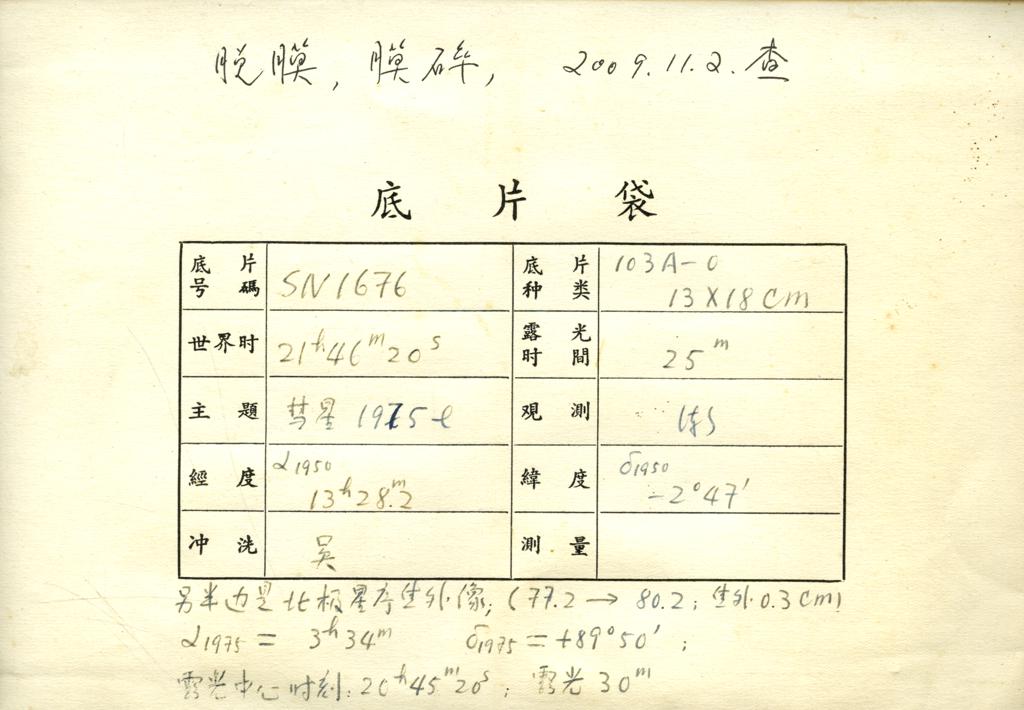 脱膜，膜碎， 2009.11.2.查
底片袋
底片号碼 SN1676 底片种类 103A-O 13X18cm
世界时 21ʰ46ᵐ20ˢ 露光时間 25ᵐ
主題 彗星 1975-e 观測
經度 α1950 13ʰ28ᵐ.2 緯度 δ1950 -2°47'
冲洗 吴 測量
另半边是北极星 焦外像; (77.2 → 80.2; 焦外0.3cm)
α1975 = 3ʰ34ᵐ δ1975 = +89°50' ;
露光中心时刻: 20ʰ45ᵐ20ˢ; 露光30ᵐ